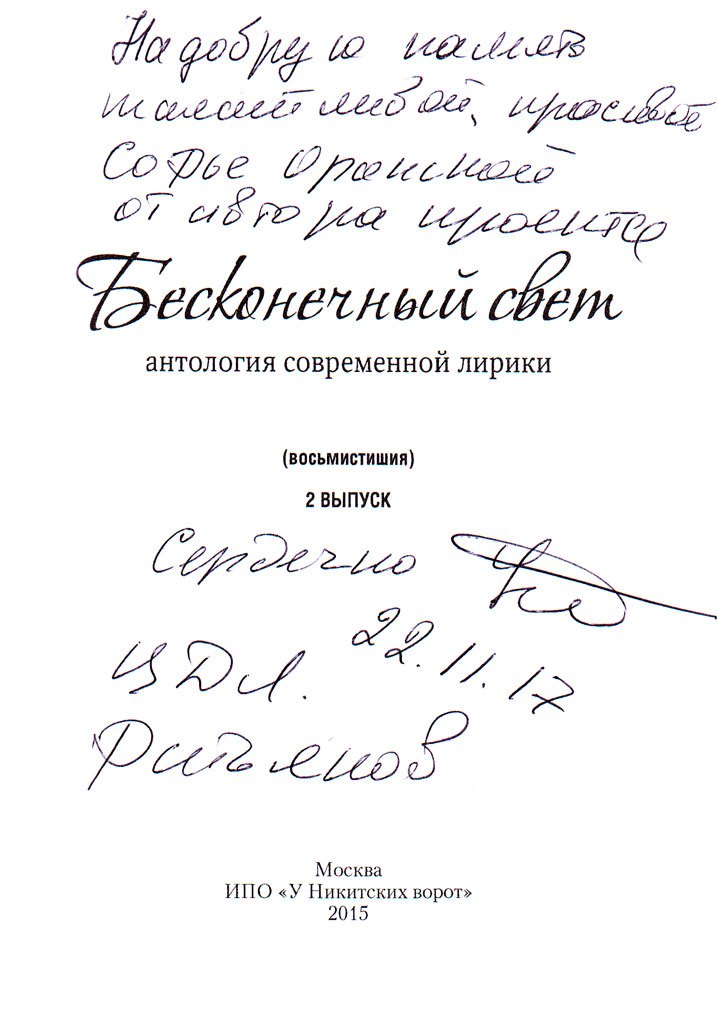 На добрую память
талантливой, красивой
Софье Оранской
от автора проекта
Бесконечный свет
антология современной лирики
(восьмистишия)
2 ВЫПУСК
Сердечно
22.11.17
ЦДЛ.
Москва
ИПО «У Никитских ворот»
2015